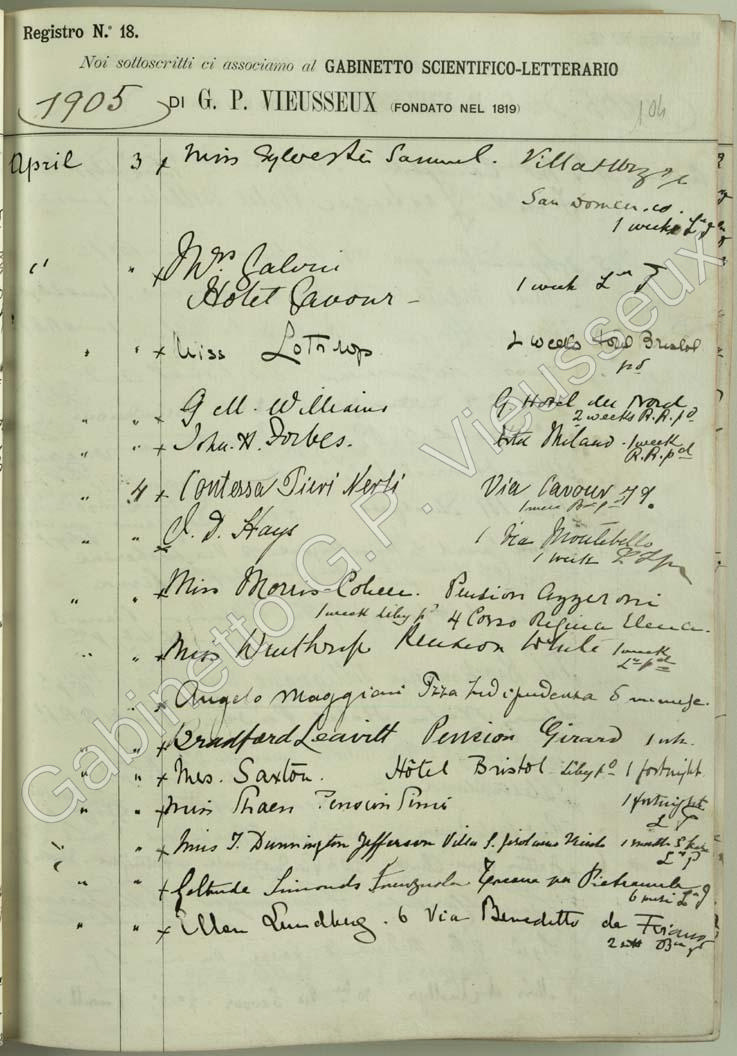 Registro N.º 18.
Noi sottoscritti ci associamo al GABINETTO SCIENTIFICO-LETTERARIO
1905 DI G. P. VIEUSSEUX (FONDATO NEL 1819)
104
April 3 Miss Sylvester Samuel. Villa
San Domenico.
1 week
" " Mrs Calvin
Hotel Cavour - 1 week
" " Miss Lothrop 2 weeks Hotel Bristol
pd
" " G M. Williams G Hotel du Nord
2 weeks R.R. pd
" " John. H. Forbes. Milano. 1 week
R.R. pd
" 4 Contessa Pieri Nerli Via Cavour
" " J. D. Hays 1 Via Montebello
1 week
" " Miss Morris-Cohen. Pension Azzerini
1 week Liby pd 4 Corso Regina Elena.
" " Miss Winthrop Pension White 1 week
pd
" Angelo Maggiani Pzza Indipendenza 6
" " Bradford Leavitt Pension Girard 1 wk.
" " Mrs. Saxton. Hôtel Bristol Liby pd 1 fortnight.
" " Miss Shaen Pension Simi 1 fortnight
" " Miss T. Dunnington Jefferson Villa S. Girolamo Fiesole 1 month
" " Gertrude Simonds Firenzuola Toscana per Pietramala
6 mesi
" " Ellen Lundberg. 6 Via Benedetto da Foiano
2
Gabinetto G.P. Vieusseux